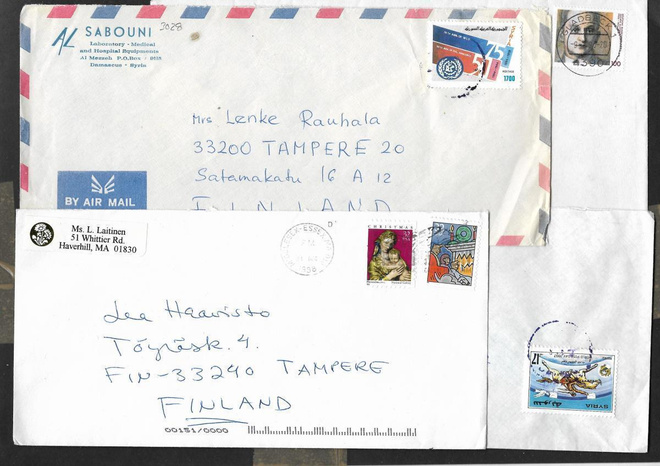 AL SABOUNI
Laboratory - Medical
and Hospital Equipments
Al Messah P.O.Box : 8525
Damascus - Syria
3028
1700
100
Mrs Lenke Rauhala
33200 TAMPERE 20
Satamakatu 16 A 12
FINLAND
BY AIR MAIL
Ms. L. Laitinen
51 Whittier Rd.
Haverhill, MA 01830
CHRISTMAS
Lea Haavisto
Töyräsk. 4.
FIN-33240 TAMPERE
FINLAND
00151/0000
17
SYRIA